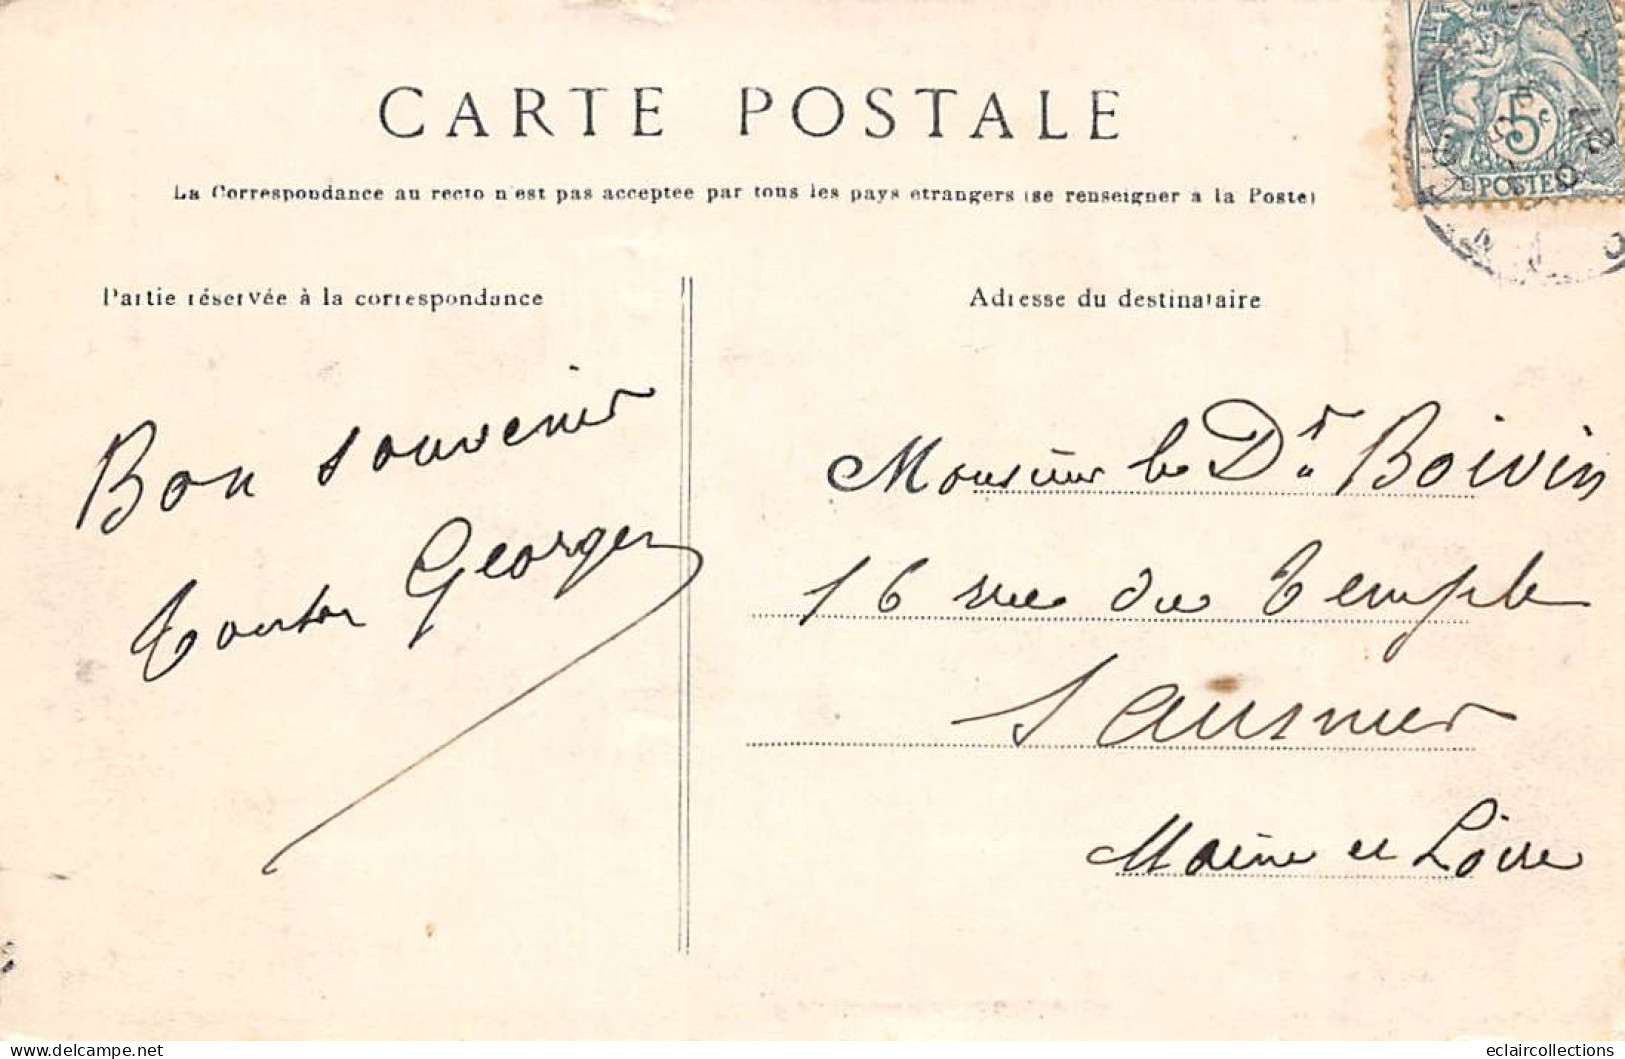 CARTE POSTALE
La Correspondance au recto n'est pas acceptee par tous les pays etrangers (se renseigner a la Poste)
Partie réservée à la correspondance
Adresse du destinataire
5c
POSTES
Bon souvenir
Tonton Georges
Monsieur le Dr Boivin
16 rue du Temple
Saumur
Maine et Loire
delcampe.net
eclaircollections